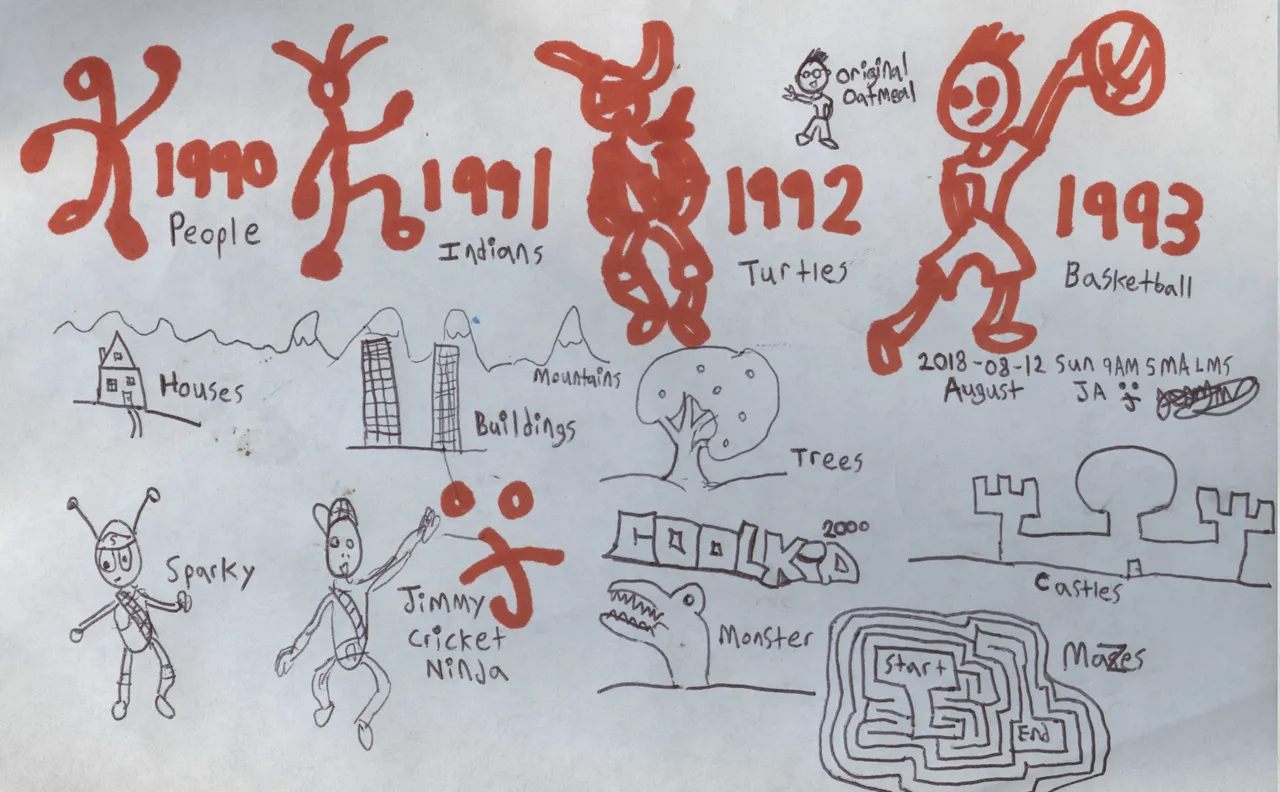 Original
Oatmeal
1990
People
1991
Indians
1992
Turtles
1993
Basketball
2018-08-12 Sun 9AM 5MALMS
August JA
Houses
Buildings
Mountains
Trees
Sparky
Jimmy
Cricket
Ninja
COOLKID 2000
Monster
Castles
Mazes
Start
End